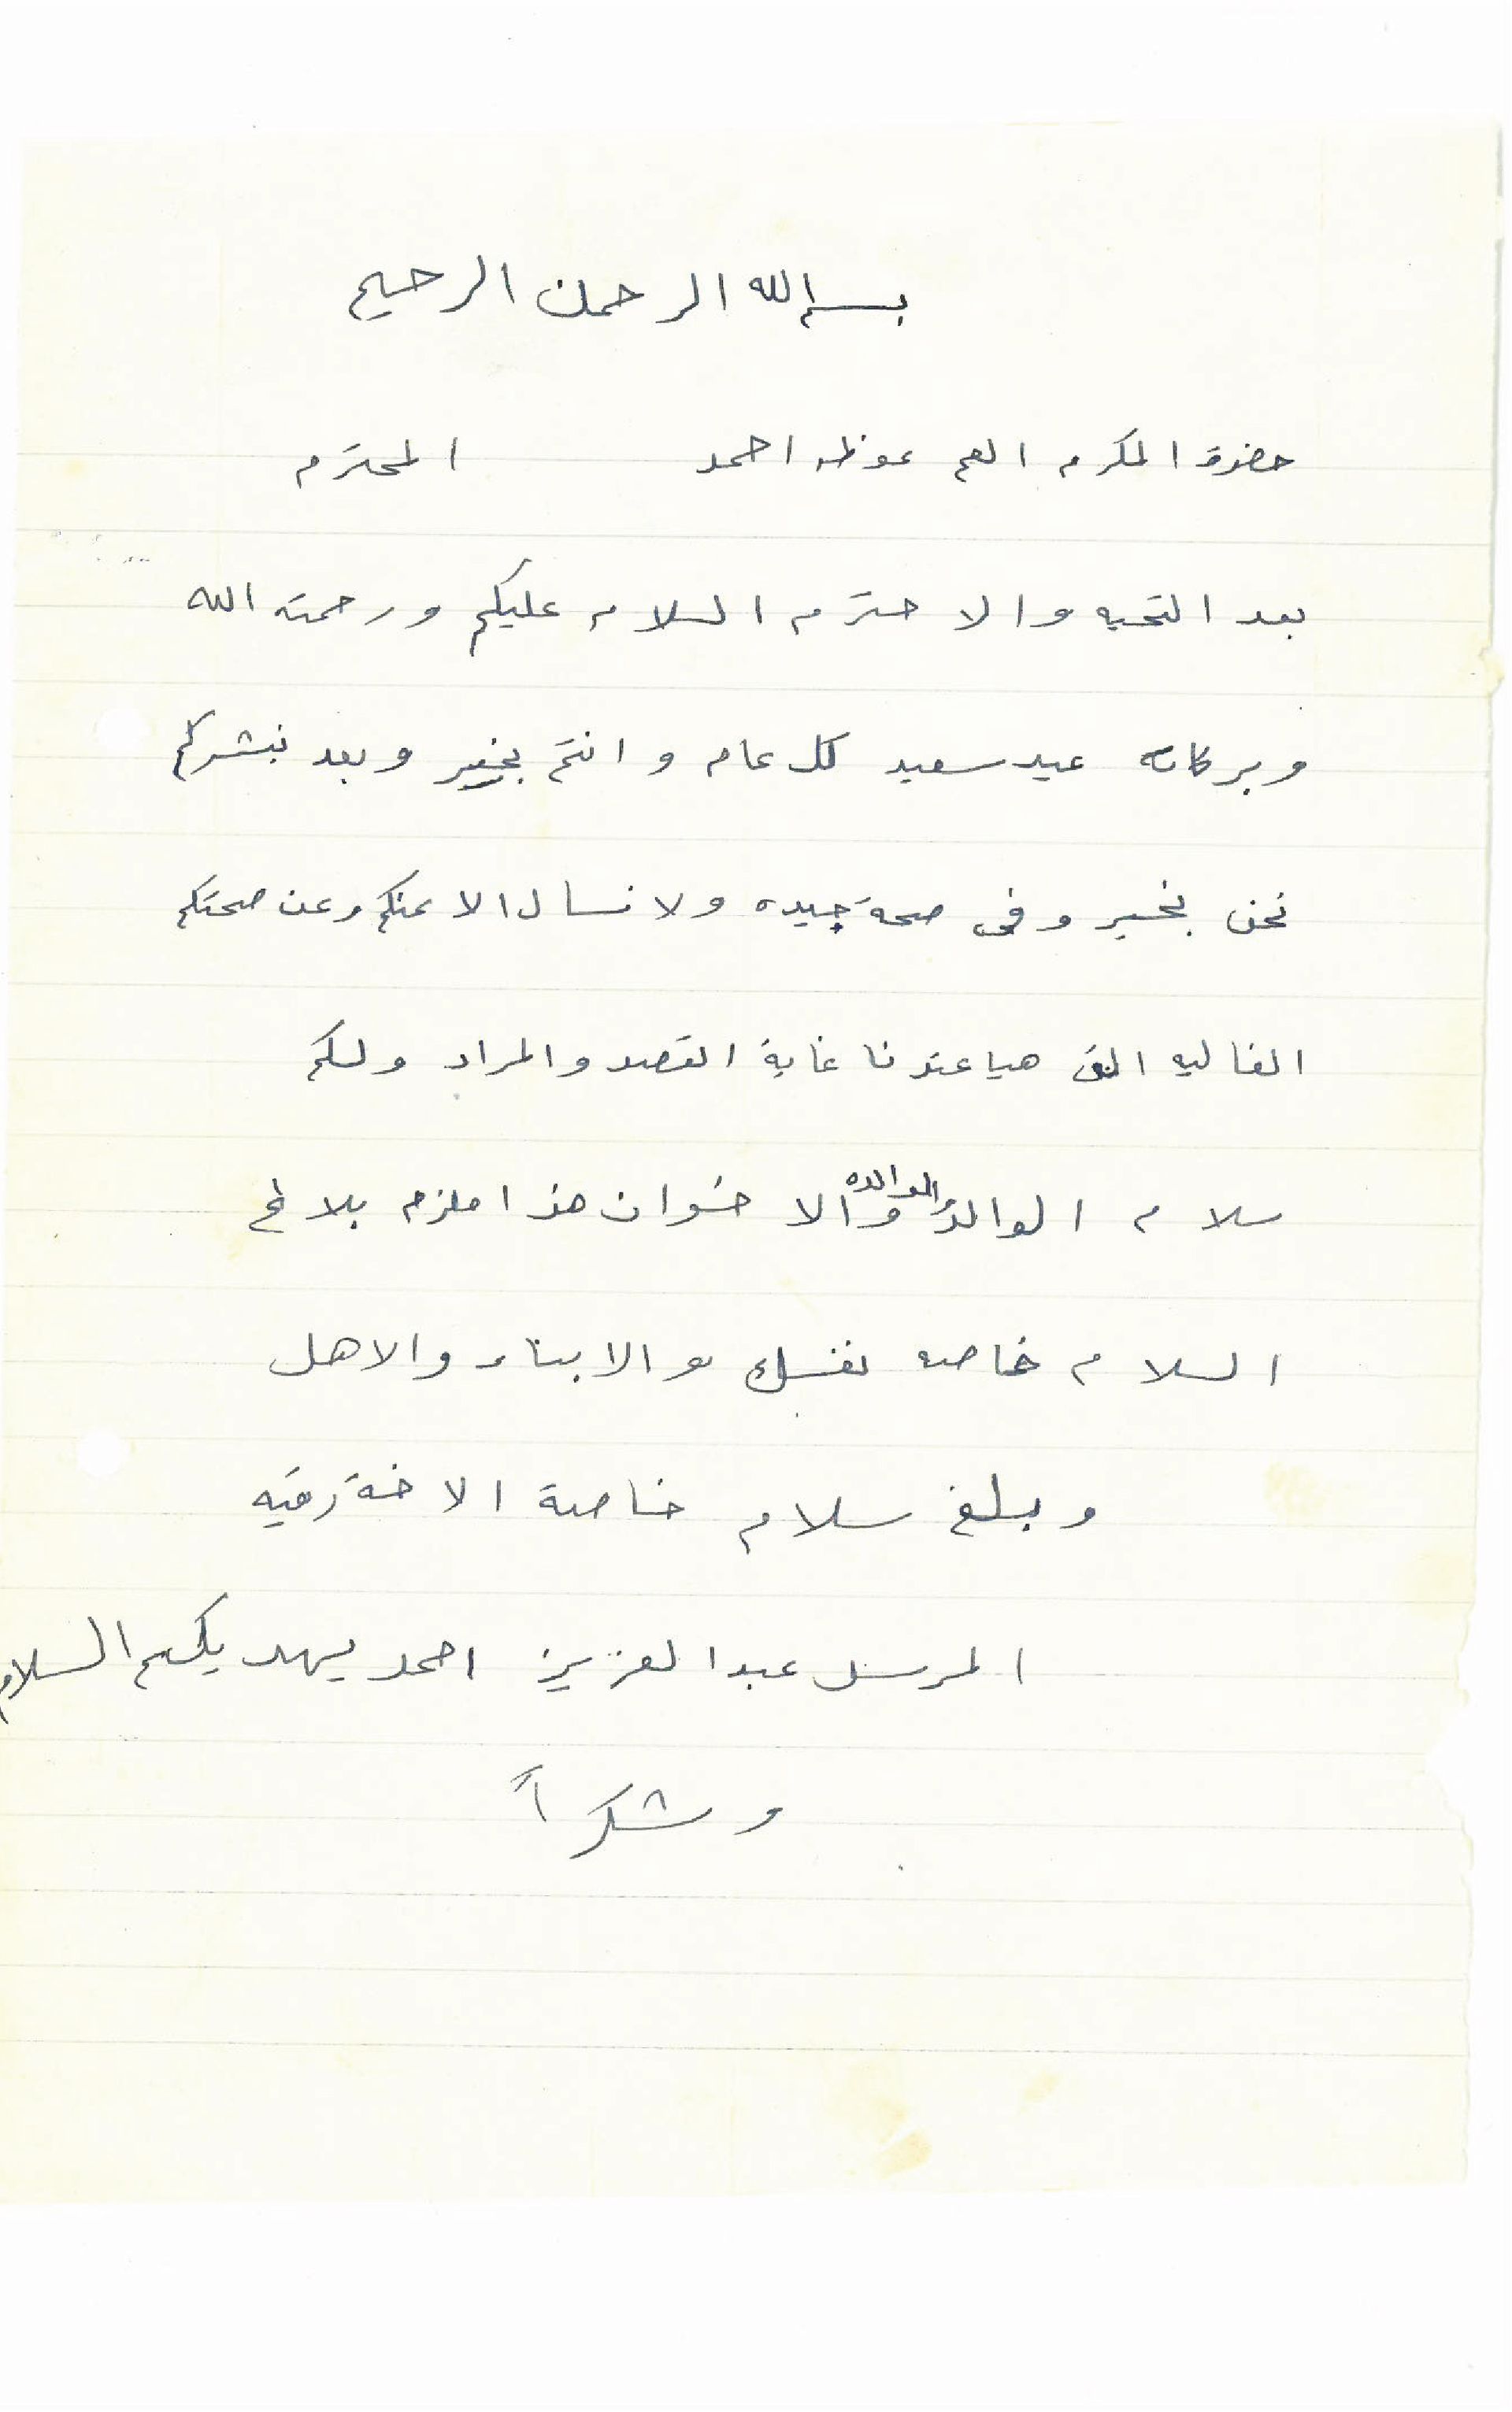 بسم الله الرحمن الرحيم
حضرة المكرم العم عوظه احمد المحترم
بعد التحيه والاحترم السلام عليكم ورحمته الله
وبركاته عيد سعيد كل عام وانتم بخير وبعد نبشركم
نحن بخير وفي صحة جيده ولا نسال الا عنكم وعن صحتكم
الغاليه التي هيا عندنا غاية القصد والمراد ولكم
سلام الوالد والوالده والاخوان هذا ملزم بلاغ
السلام خاصه نفسك والابناء والاهل
وبلغ سلام خاصة الاخة رقيه
المرسل عبدالعزيز احمد يهديكم السلام
وشكراً